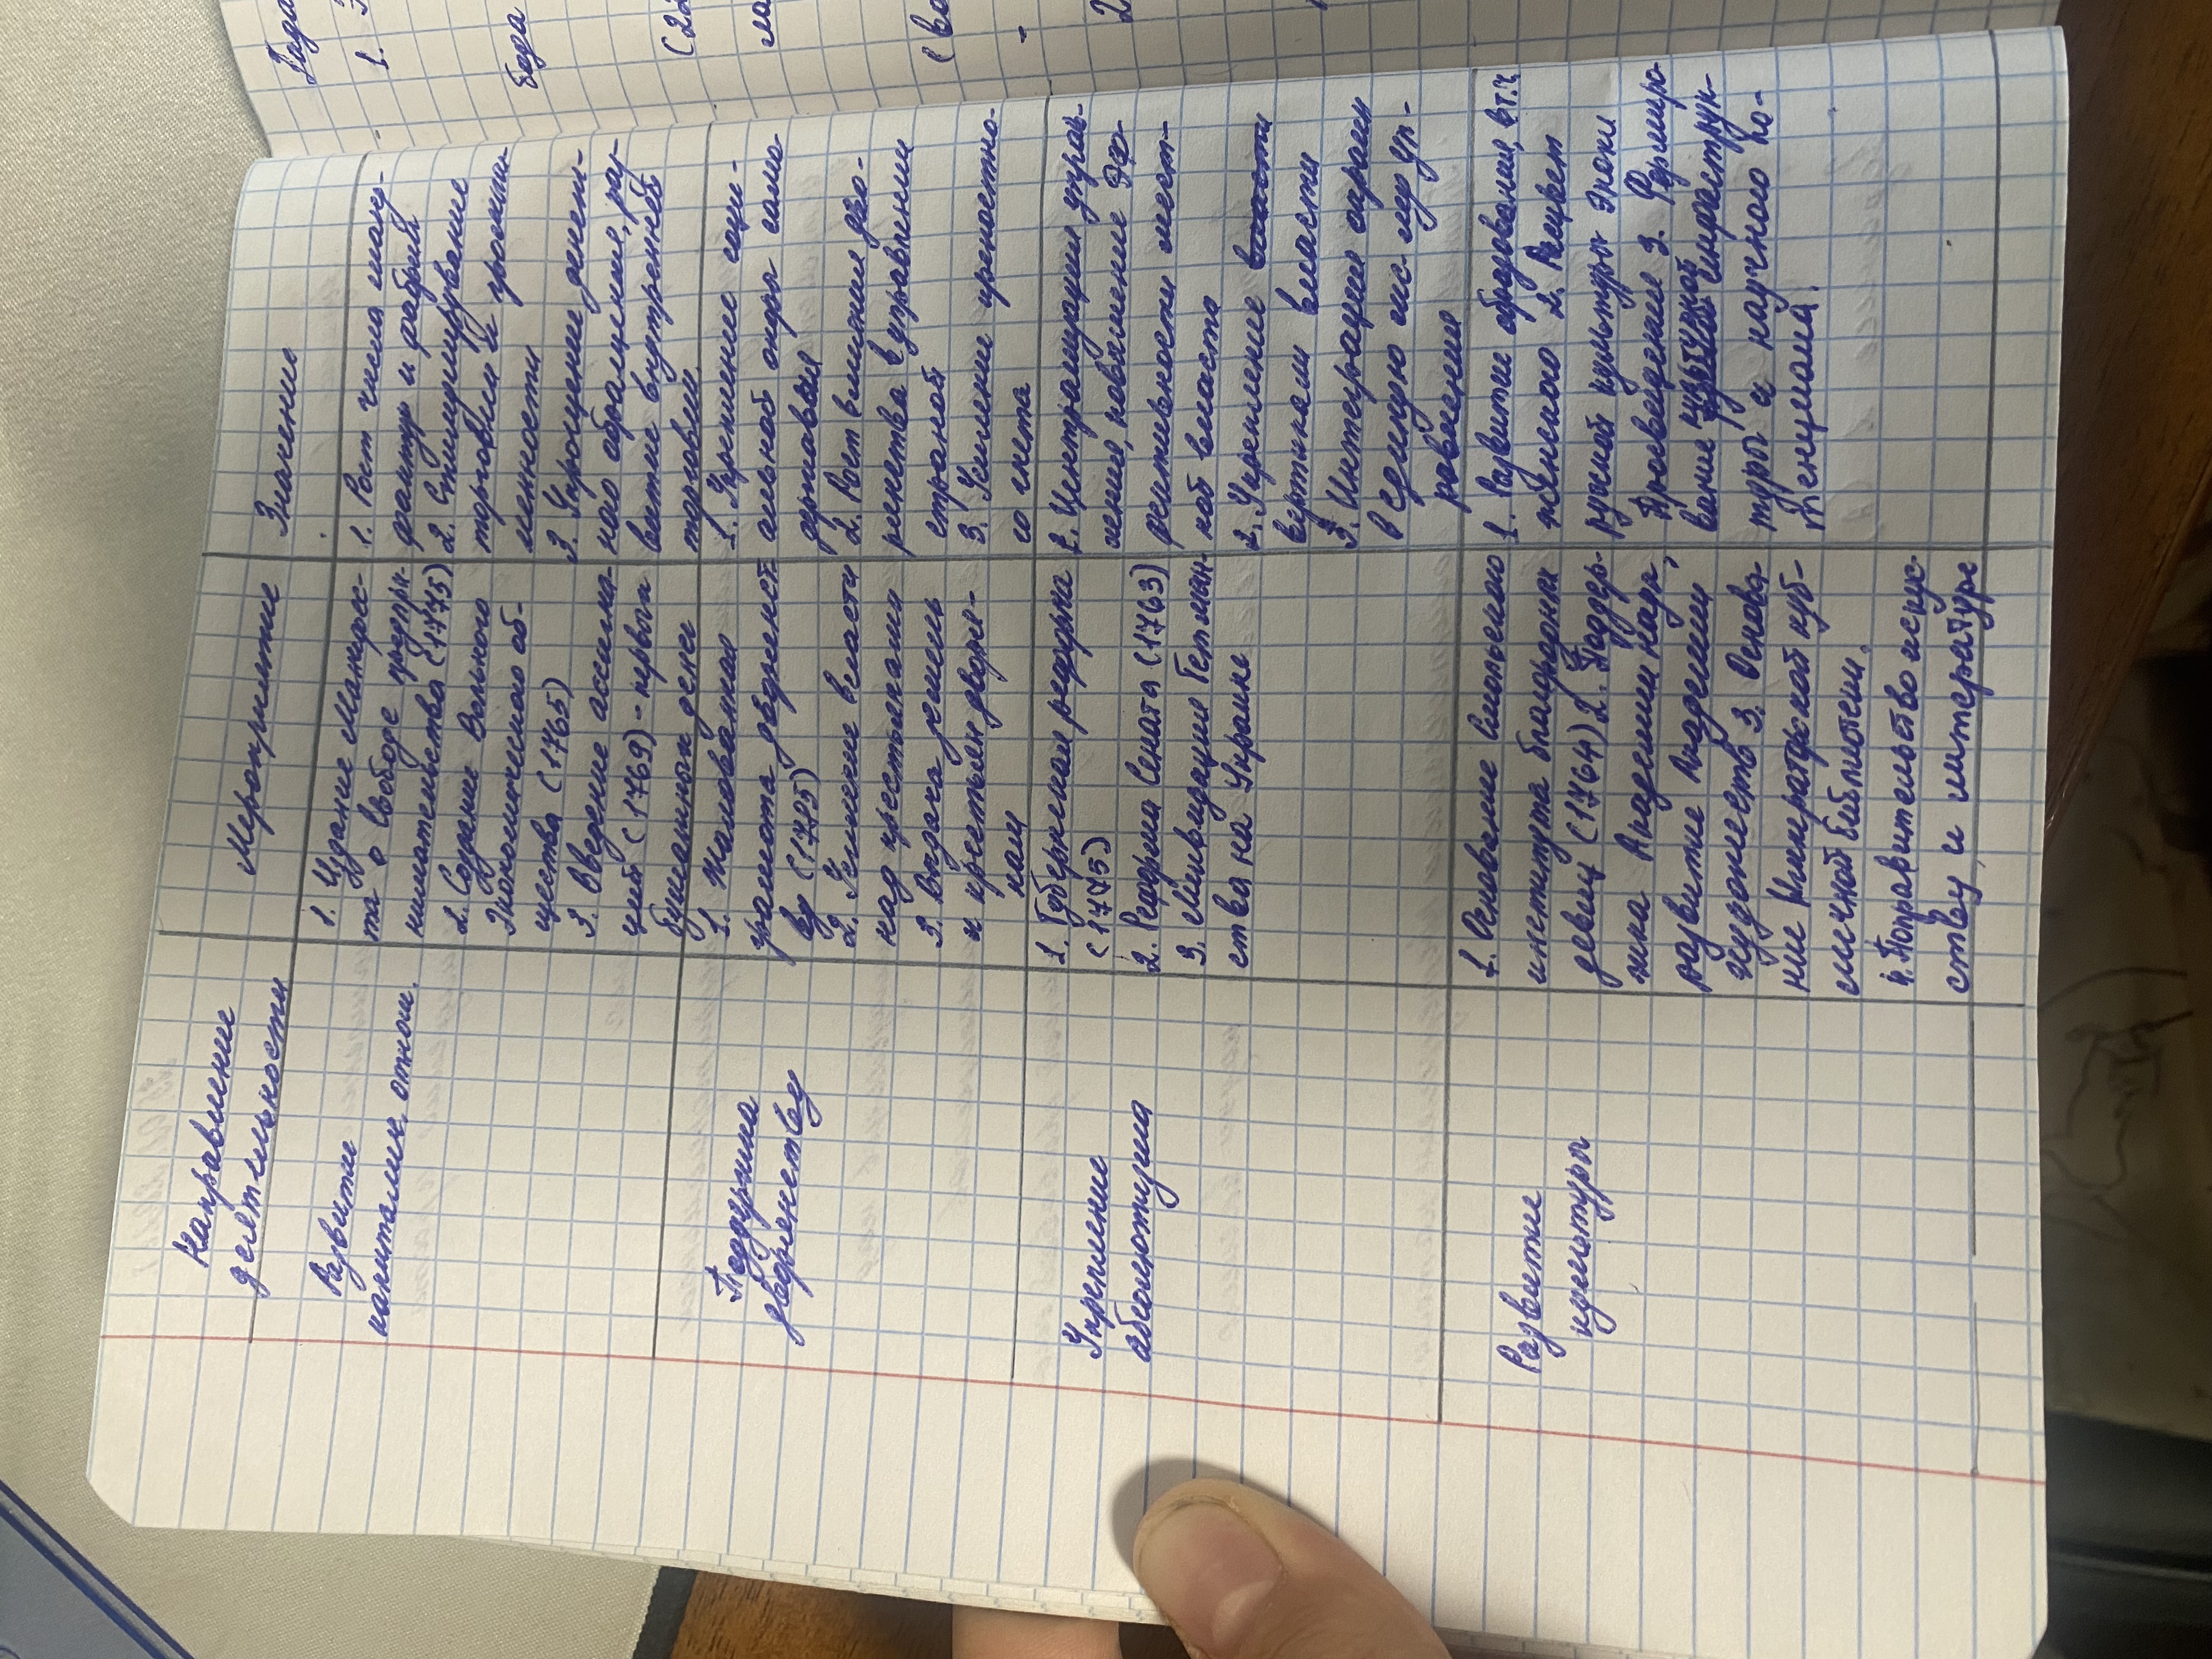 Направление
деятельности
Мероприятие
Значение
Развитие
капиталис. отнош.
1. Издание Манифес-
та о свободе предпри-
нимательства (1775)
2. Создание Вольного
Экономического об-
щества (1765)
3. Введение ассигна-
ций (1769) - первых
бумажных денег
1. Рост числа ману-
фактур и фабрик
2. Стимулирование
торговли и промыш-
ленности
3. Упрощение денеж-
ного обращения, раз-
витие внутренней
торговли
Поддержка
дворянству
1. Жалованная
грамота дворянст
ву (1785)
2. Усиление власти
над крестьянами
3. Выдача земель
и крестьян дворя-
нам
1. Укрепление соци-
альной опоры само
державия
2. Рост влияния дво-
рянства в управлении
страной
3. Усиление крепостно-
го гнета
Укрепление
абсолютизма
1. Губернская реформа
(1775)
2. Реформа Сената (1763)
3. Ликвидация Гетман-
ства на Украине
1. Централизация управ-
ления, повышение эф-
фективности мест-
ной власти
2. Укрепление власти
вертикали власти
3. Интеграция окраин
в единую сис-му уп-
равления
Развитие
культуры
1. Основание Смольного
института благородных
девиц (1764) 2. Поддер-
жка Академии наук,
развитие Академии
художеств 3. Основа-
ние Императорской пуб-
личной библиотеки.
4. Покровительство искус-
ству и литературе
1. Развитие образования, в т.ч.
женского 2. Расцвет
русской культуры эпохи
Просвещения 3. Формиро
вание культурной инфраструк-
туры и научного по-
тенциала.
Года
1.
беда
(22
ло
(во
-
2